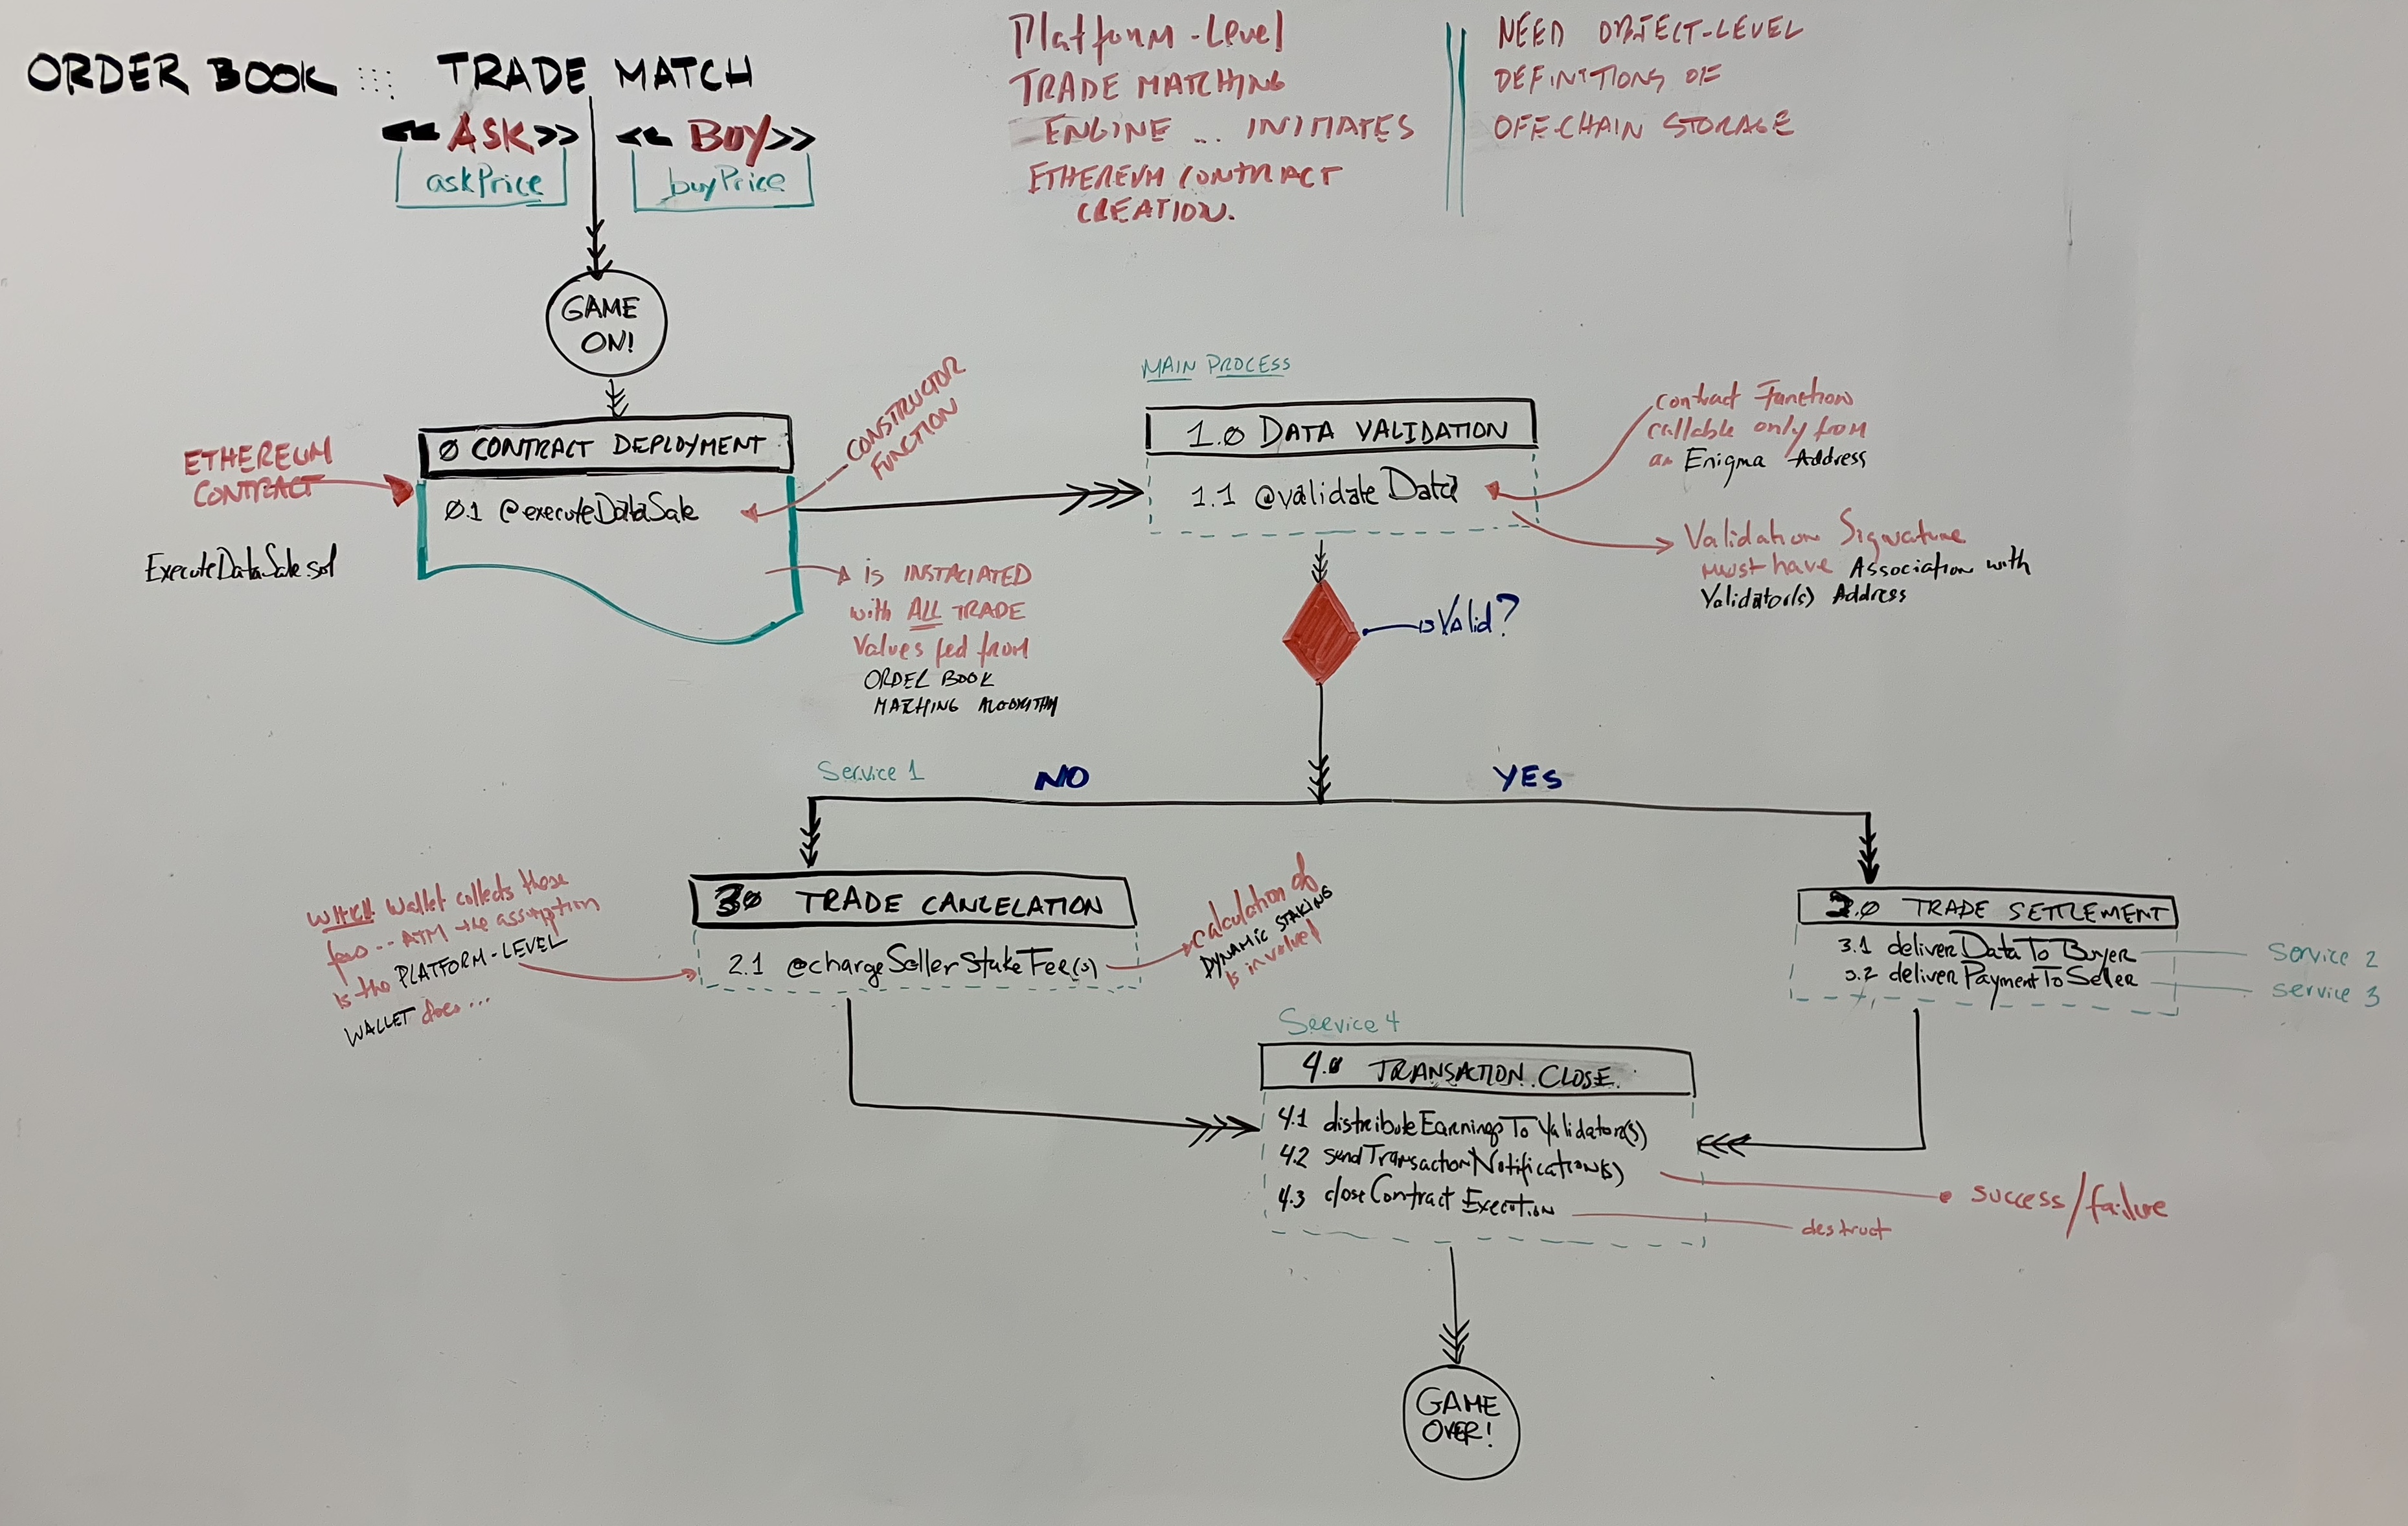 ORDER BOOK ::: TRADE MATCH
<< ASK >> << BUY >>
askPrice buyPrice
Platform-Level
TRADE MATCHING
ENGINE ... INITIATES
ETHEREUM CONTRACT
CREATION.
NEED OBJECT-LEVEL
DEFINITIONS OF
OFF-CHAIN STORAGE
GAME
ON!
ETHEREUM
CONTRACT
ExecuteDataSale.sol
Ø CONTRACT DEPLOYMENT
Ø.1 @executeDataSale
CONSTRUCTOR
FUNCTION
is INSTACIATED
with ALL TRADE
Values fed from
ORDER BOOK
MATCHING ALGORITHM
MAIN PROCESS
1.Ø DATA VALIDATION
1.1 @validateData
contract Function
callable only from
an Enigma Address
Validation Signature
must have Association with
Validator(s) Address
isValid?
Service 1
NO
YES
3Ø TRADE CANCELATION
2.1 @chargeSellerStakeFee(s)
WHICH Wallet collects those
fees... ATM the assumption
is the PLATFORM-LEVEL
WALLET does...
calculation of
DYNAMIC STAKING
is involved
2.Ø TRADE SETTLEMENT
3.1 deliverDataToBuyer
3.2 deliverPaymentToSeller
Service 2
Service 3
Service 4
4.Ø TRANSACTION CLOSE
4.1 distributeEarningsToValidator(s)
4.2 sendTransactionNotification(s)
4.3 closeContractExecution
success/failure
destruct
GAME
OVER!